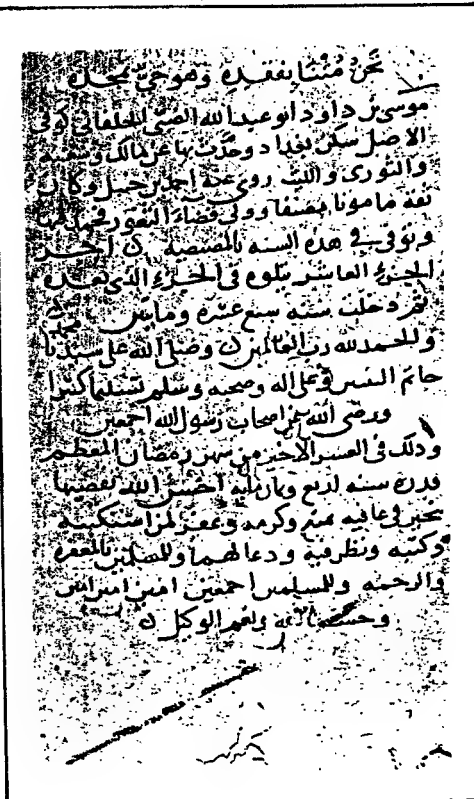 نحن متنا بفقده وهو حي بمجده
موسى بن داود ابو عبد الله الضبى الخلقانى كوفى
الاصل سكن بغداد وحدث بها عن مالك وشعبة
والثورى والليث روى عنه احمد بن حنبل وكان
ثقة مامونا مصنفا وولى قضاء الثغور فحمد فيها
وتوفى فى هذه السنه بالمصيصه ن اخر
الجزء العاشر يتلوه فى الجزء الذى بعده
ثم دخلت سنه سبع عشره ومايتين
والحمد لله رب العالمين ن وصلى الله على سيدنا محمد
خاتم النبيين وعلى اله وصحبه وسلم تسليما كثيرا
ورضى الله عن اصحاب رسول الله اجمعين
وذلك فى العشر الاخير من شهر رمضان المعظم
قدره سنه اربع وثمان مايه احسن الله تقضيها
بخير وعافيه بمنه وكرمه وغفر لمن استكتبه
وكتبه ونظر فيه ودعا لهما وللمسلمين بالمغفره
والرحمه وللمسلمين اجمعين امين امين امين
وحسبنا الله ونعم الوكيل ن